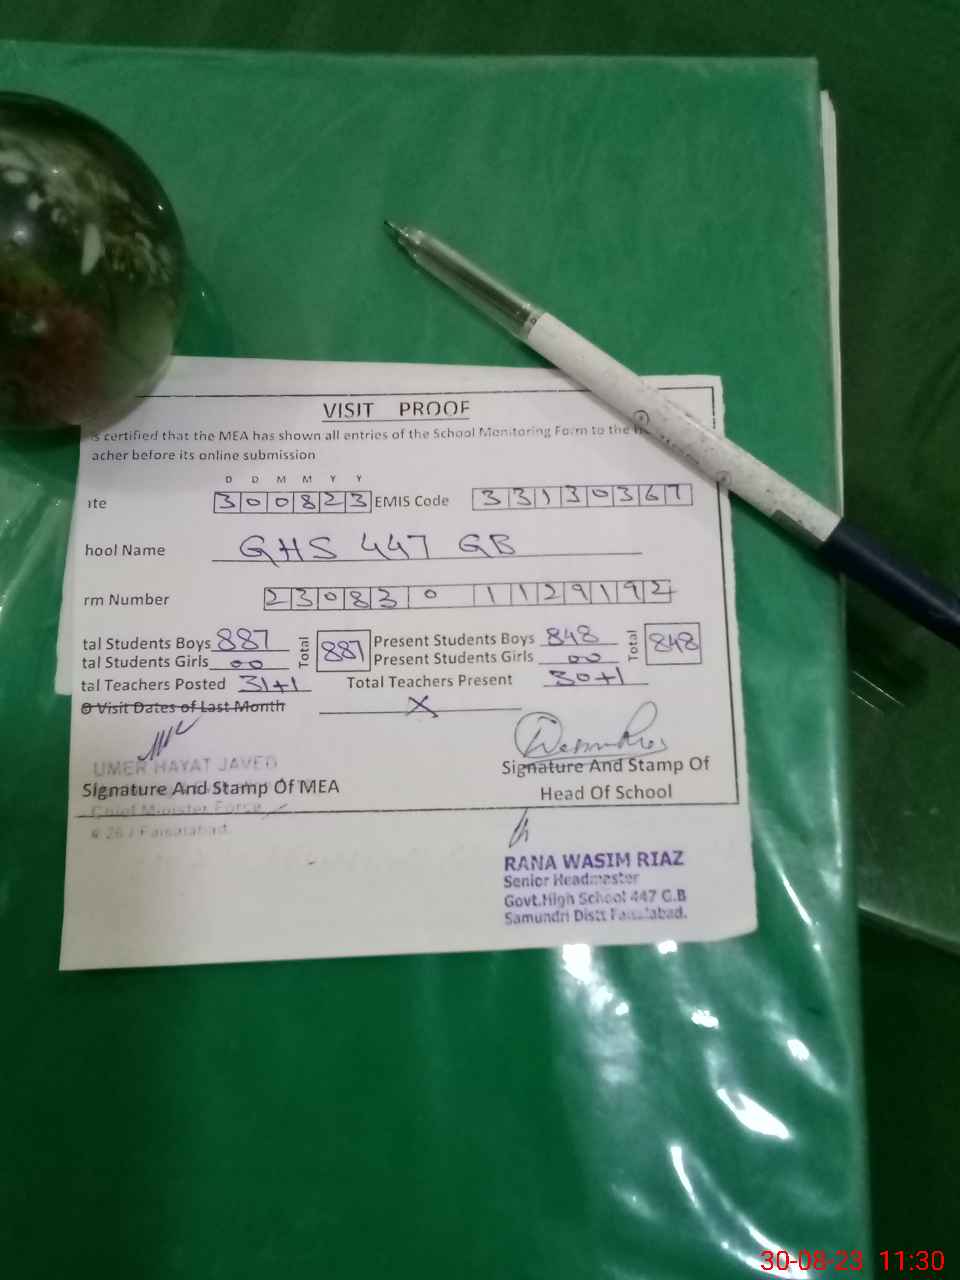 VISIT PROOF
is certified that the MEA has shown all entries of the School Monitoring Form to the
acher before its online submission
D D M M Y Y
te 300823 EMIS Code 33130367
hool Name GHS 447 GB
rm Number 230830 1129192
tal Students Boys 887 Total 887 Present Students Boys 848 Total 848
tal Students Girls 00 Present Students Girls 00
tal Teachers Posted 31+1 Total Teachers Present 30+1
Visit Dates of Last Month X
UMER HAYAT JAVED
Signature And Stamp Of MEA
Signature And Stamp Of
Head Of School
Chief Minister Force
# 26 / Faisalabad.
RANA WASIM RIAZ
Senior Headmaster
Govt.High School 447 G.B
Samundri Distt Faisalabad.
30-08-23 11:30